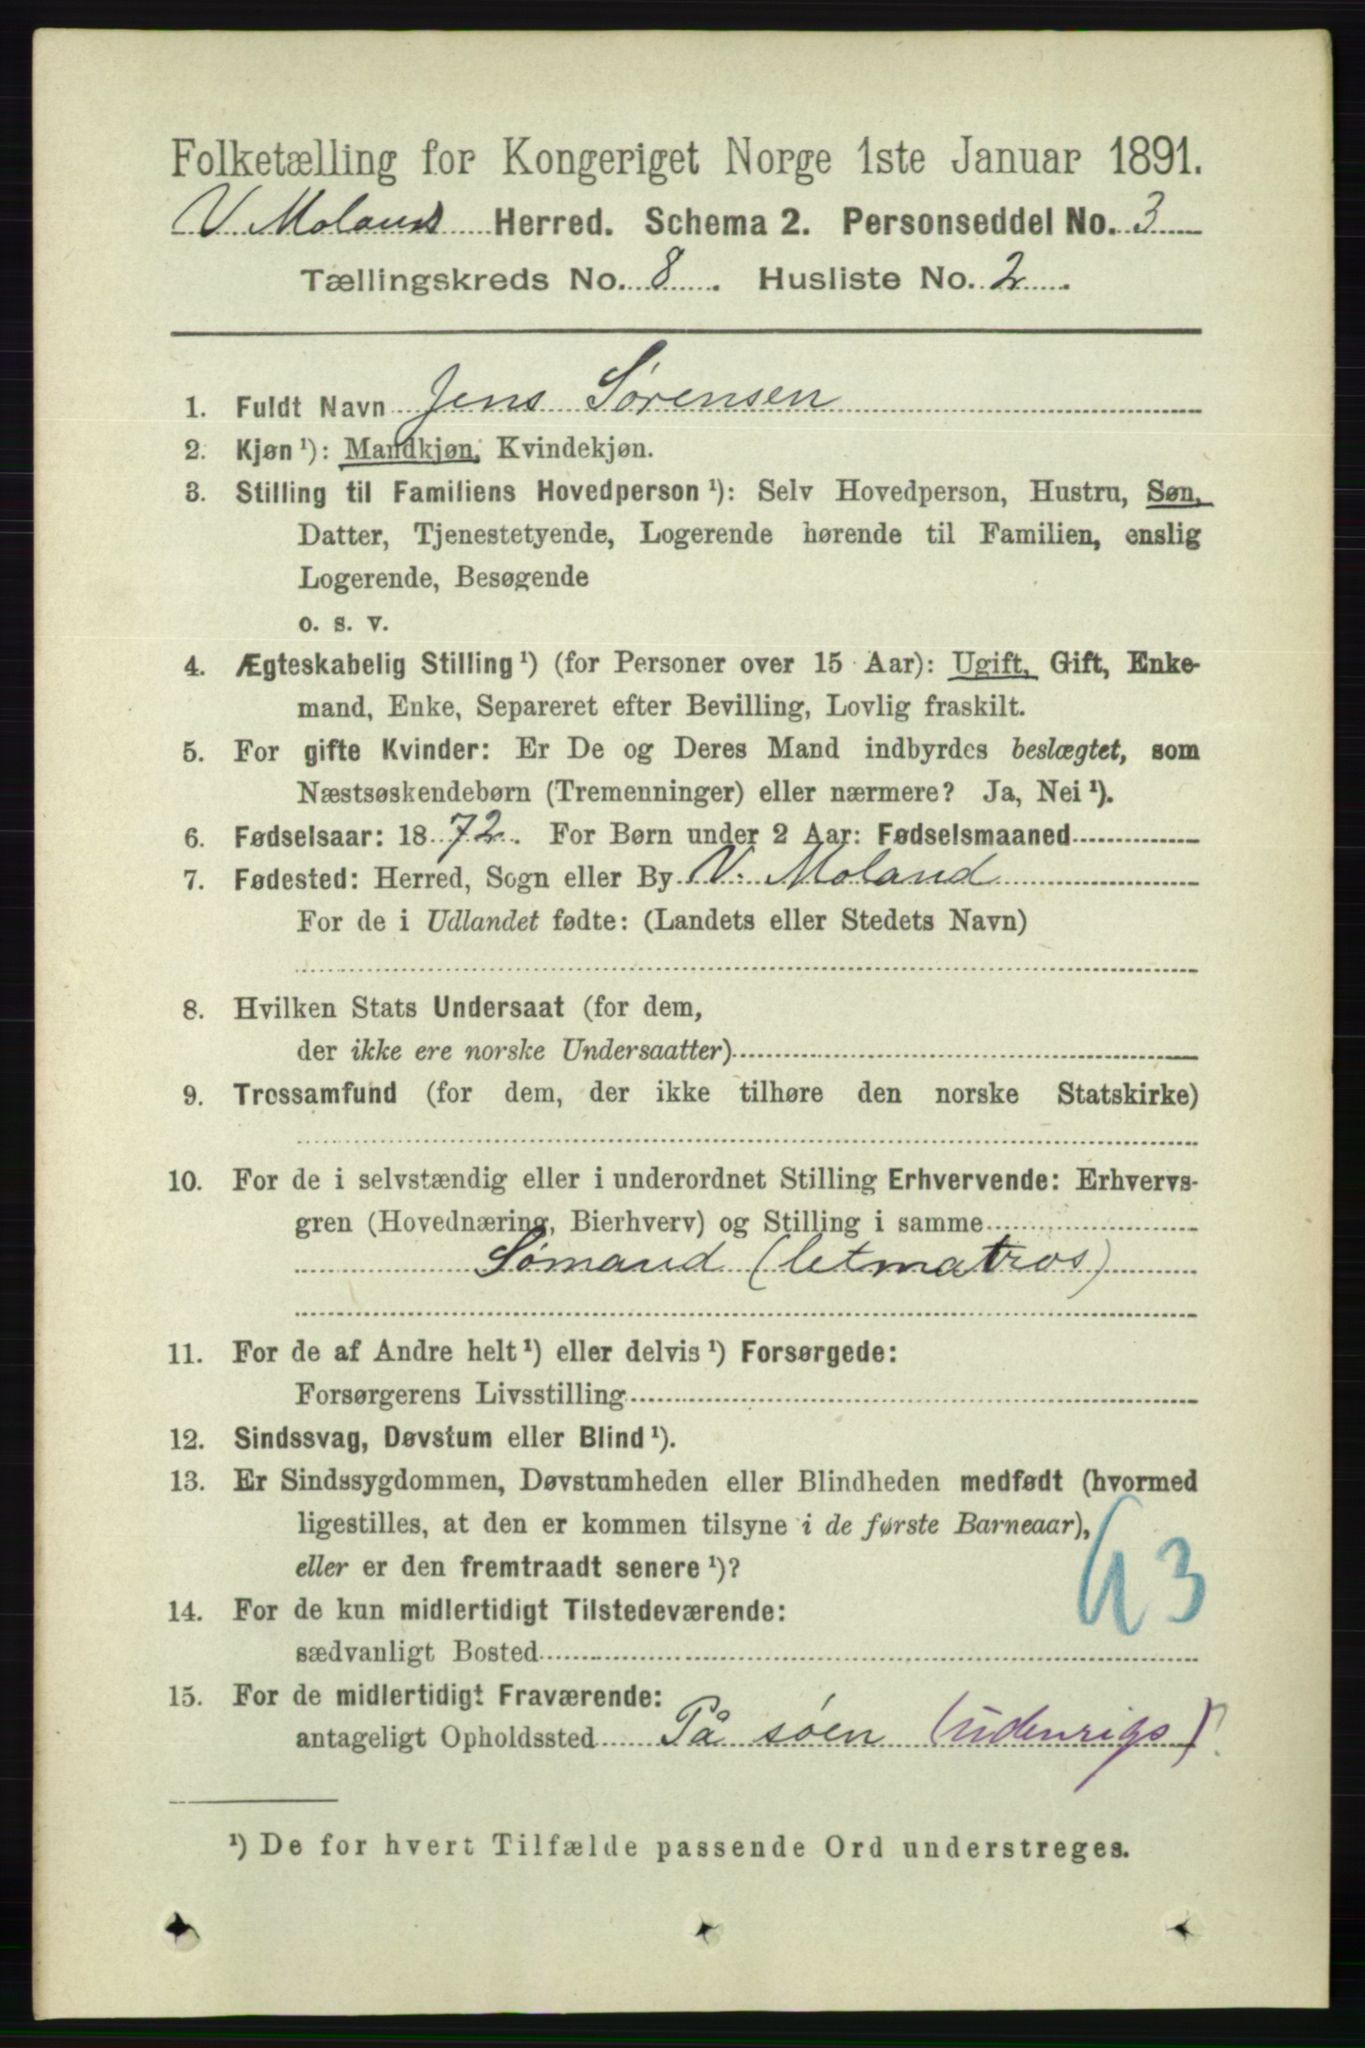 Folketælling for Kongeriget Norge 1ste Januar 1891.
V. Molands Herred. Schema 2. Personseddel No. 3
Tællingskreds No. 8. Husliste No. 2.
1. Fuldt Navn Jens Sørensen
2. Kjøn¹): Mandkjøn, Kvindekjøn.
3. Stilling til Familiens Hovedperson¹): Selv Hovedperson, Hustru, Søn,
Datter, Tjenestetyende, Logerende hørende til Familien, enslig
Logerende, Besøgende
o. s. v.
4. Ægteskabelig Stilling¹) (for Personer over 15 Aar): Ugift, Gift, Enke-
mand, Enke, Separeret efter Bevilling, Lovlig fraskilt.
5. For gifte Kvinder: Er De og Deres Mand indbyrdes beslægtet, som
Næstsøskendebørn (Tremenninger) eller nærmere? Ja, Nei¹).
6. Fødselsaar: 1872. For Børn under 2 Aar: Fødselsmaaned
7. Fødested: Herred, Sogn eller By V. Moland
For de i Udlandet fødte: (Landets eller Stedets Navn)
8. Hvilken Stats Undersaat (for dem,
der ikke ere norske Undersaatter)
9. Trossamfund (for dem, der ikke tilhøre den norske Statskirke)
10. For de i selvstændig eller i underordnet Stilling Erhvervende: Erhvervs-
gren (Hovednæring, Bierhverv) og Stilling i samme
Sømand (letmatros)
11. For de af Andre helt¹) eller delvis¹) Forsørgede:
Forsørgerens Livsstilling
12. Sindssvag, Døvstum eller Blind¹).
13. Er Sindssygdommen, Døvstumheden eller Blindheden medfødt (hvormed
ligestilles, at den er kommen tilsyne i de første Barneaar),
eller er den fremtraadt senere¹)?
14. For de kun midlertidigt Tilstedeværende:
sædvanligt Bosted
15. For de midlertidigt Fraværende:
antageligt Opholdssted På søen (udenrigs)?
¹) De for hvert Tilfælde passende Ord understreges.